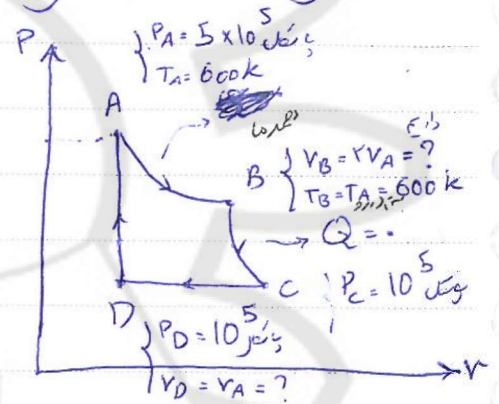 P
P_A = 5 × 10^5 پاسکال
T_A = 600 k
A
همدما
B
V_B = ۲V_A = ?
T_B = T_A = 600 k
Q = ۰
C
P_C = 10^5
D
P_D = 10^5
V_D = V_A = ?
V